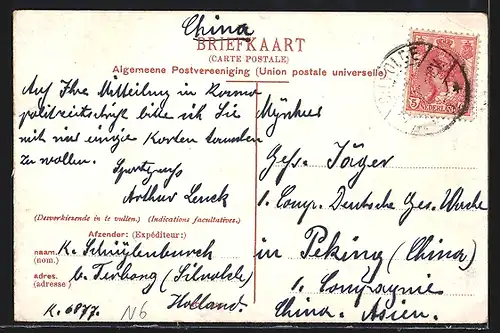 China
BRIEFKAART
(CARTE POSTALE)
Algemeene Postvereeniging (Union postale universelle)
Auf Ihre Mitteilung in
bitte ich Sie
mit mir einige Karten tauschen
zu wollen.
Arthur
(Desverkiezende in te vullen.) (Indications facultatives.)
Afzender: (Expéditeur:)
naam. K.
(nom.)
adres. b. Terborg (Silvolde)
(adresse)
Holland.
K. 6877.
N6
5
NEDERLAND
Mijnheer
Gefr. Jäger
1. Comp. Deutsche Ges. Wache
in Peking (China)
1. Compagnie
China. Asien.